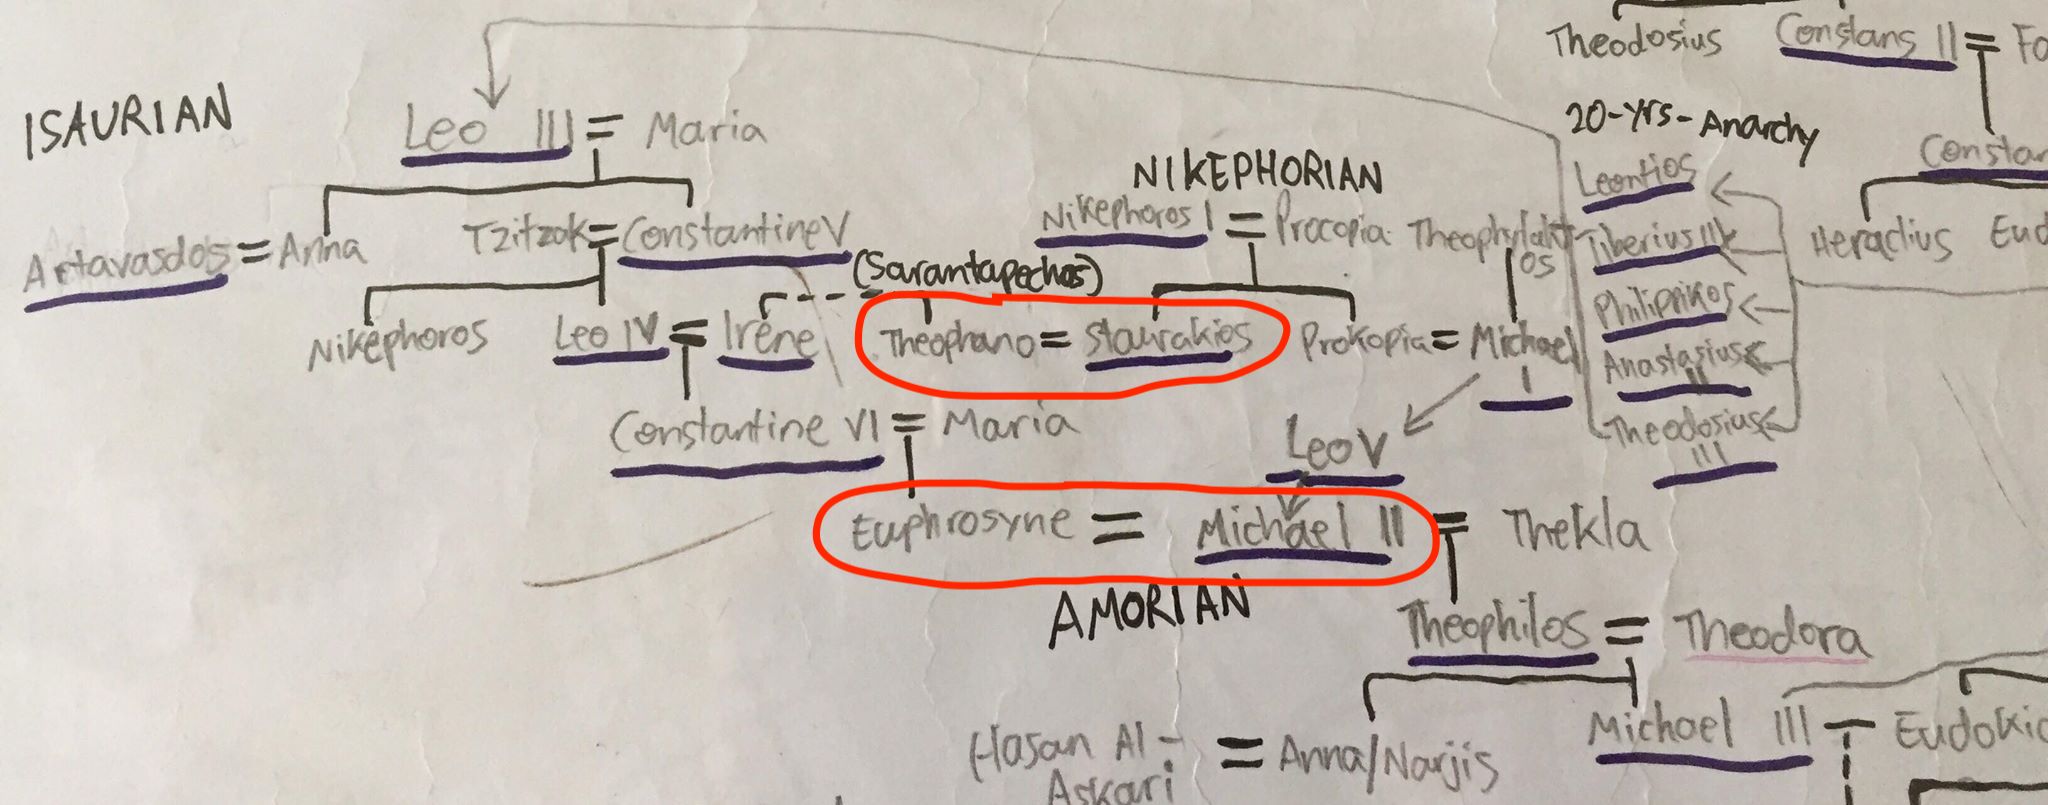 Theodosius Constans II = Fa
20-yrs-Anarchy
ISAURIAN
Leo III = Maria
Constan
Leontios
NIKEPHORIAN
Nikephoros I = Procopia Theophylakt
os
Tiberius III
Heraclius Eud
Artavasdos = Anna Tzitzak = Constantine V
(Sarantapechos)
Philippikos
Nikephoros Leo IV = Irene Theophano = Staurakios Prokopia = Michael
I
Anastasius
II
Constantine VI = Maria
Leo V
Theodosius
III
Euphrosyne = Michael II = Thekla
AMORIAN
Theophilos = Theodora
Hasan Al-
Askari
= Anna/Narjis
Michael III - Eudokia